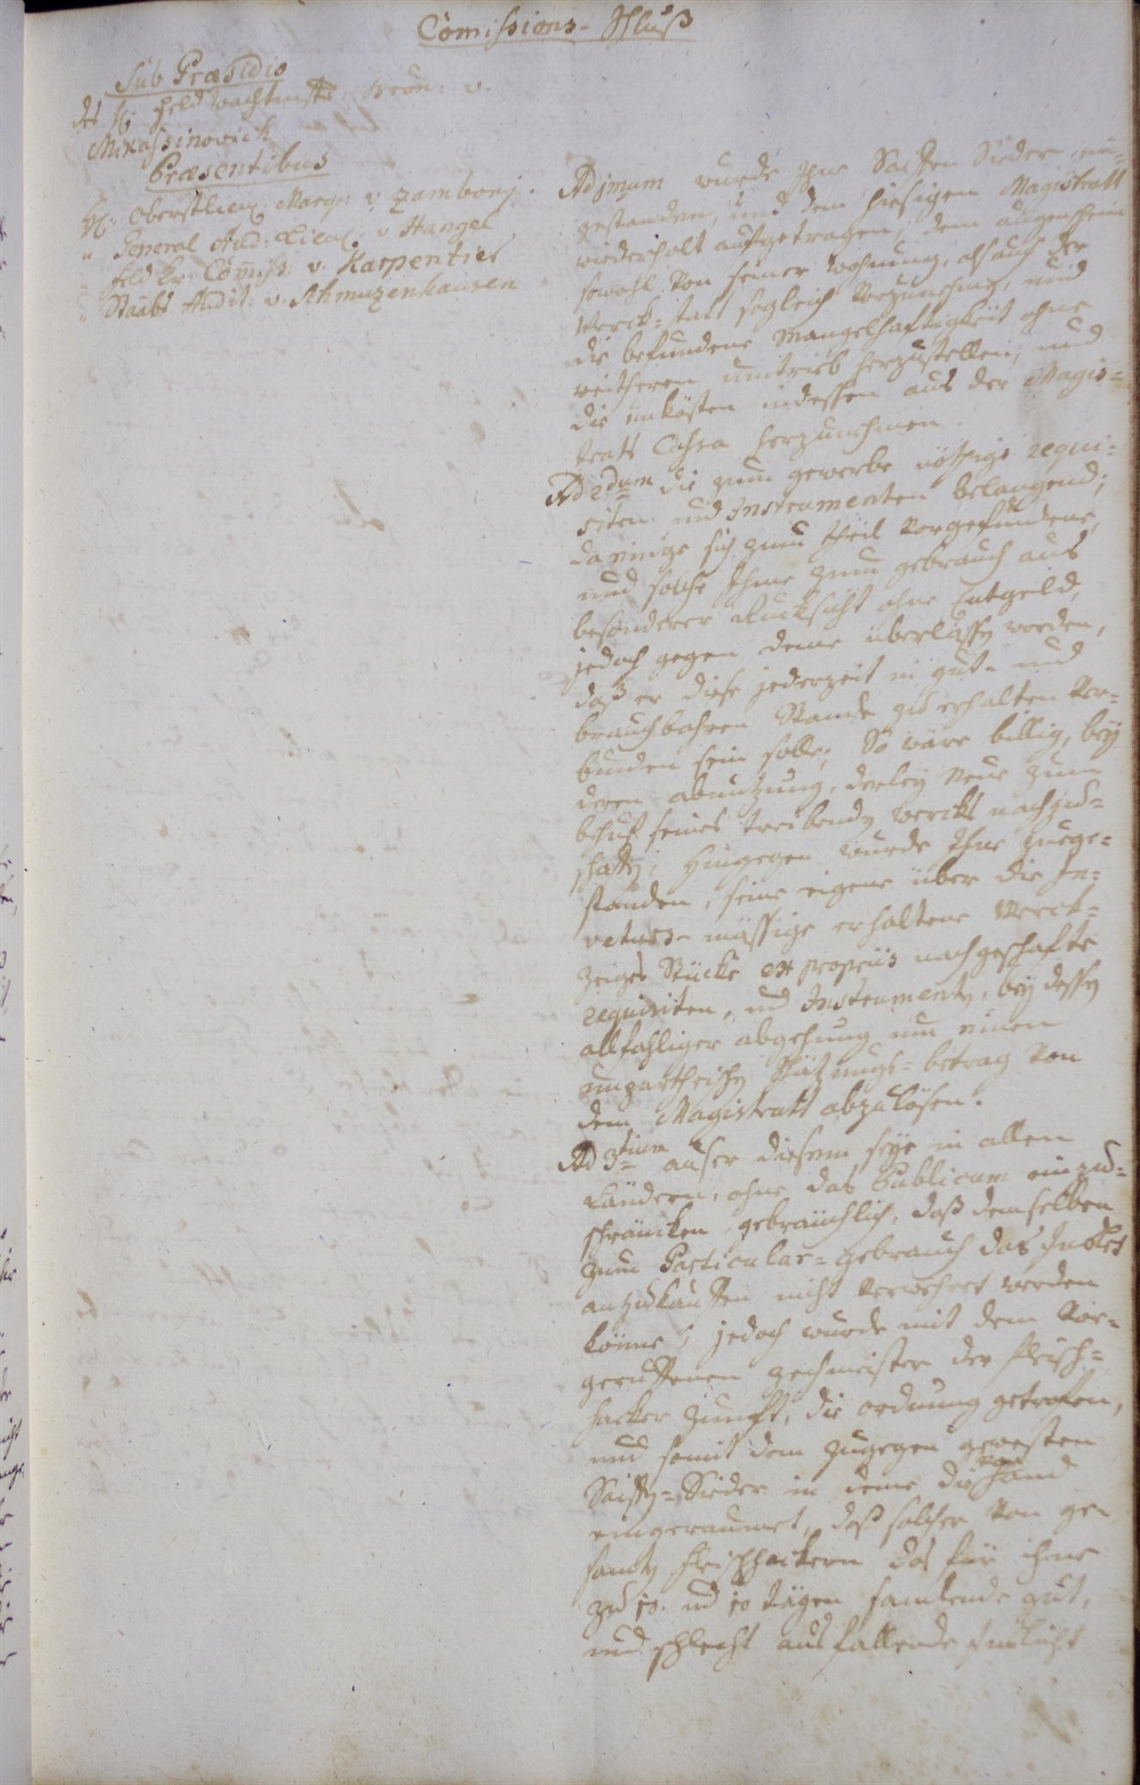 Comissions-Schluß
Sub Præsidio
des H: Feld Wachtmstr: Baron: v.
Mikassinovich
Præsentibus
H: Oberstlieu: Marq: v. Zambony.
" General Aud: Lieu: v Hangel
" Feld Kr: Commiss: v. Karpentier
" Staabs Audit: v. Schmuzenhausen
Ad 1mum wurde Saiffen Sieder ein=
gestanden, und dem hiesigen Magistratt
wiederholt aufgetragen, den augenschein
sowohl von seiner Wohnung, als auch der
Werck=statt sogleich vorzunehmen, und
die befundene Mangelhaftigkeit ohne
weitheren umtrieb herzustellen, und
die unkösten indessen aus der Magis=
trats Cassa herzunehmen.
Ad 2dum die zum gewerbe nöthige requi=
siten und Instrumenten belangend;
da einige sich zum theil vorgefundene,
und solche Ihme zum gebrauch aus
besonderer Rucksicht ohne Entgeld,
jedoch gegen deme überlassen worden,
daß er diese jederzeit in gut- und
brauchbahren Stande zu erhalten ver=
bunden sein solle; So wäre billig, bey
deren abnutzung, derley Neue zum
behuf seines treibenden Wercks nachzu=
schaffen; Hingegen wurde Ihme zuege=
standen, seine eigene über die In=
ventars-mässige erhaltene Werck=
zeiges Stücke ex propriis nachgeschafte
requisiten, und Instrumenten, bey dessen
allfahliger abgehung um einen
unpartheischen Schätzungs=betrag von
dem Magistratt abzulösen.
Ad 3tium auser diesem seye in allen
Ländern, ohne das Publicum einzu=
schräncken gebräuchlich, daß demselben
zum Particular=gebrauch das Inslet
anzukauffen nicht verwehret werden
könne; jedoch wurde mit dem vor=
geruffenen zechmeister der Fleisch=
hacker Zunft, die ordnung getrofen,
und somit dem zugegen gewesten
Saiffen=Sieder in deme die Hand
eingeraumet, daß solcher von ge
samten Fleischhackern das für ihme
zu 10. und 10 tägen samlende gut,
und schlecht ausfallende Inslicht